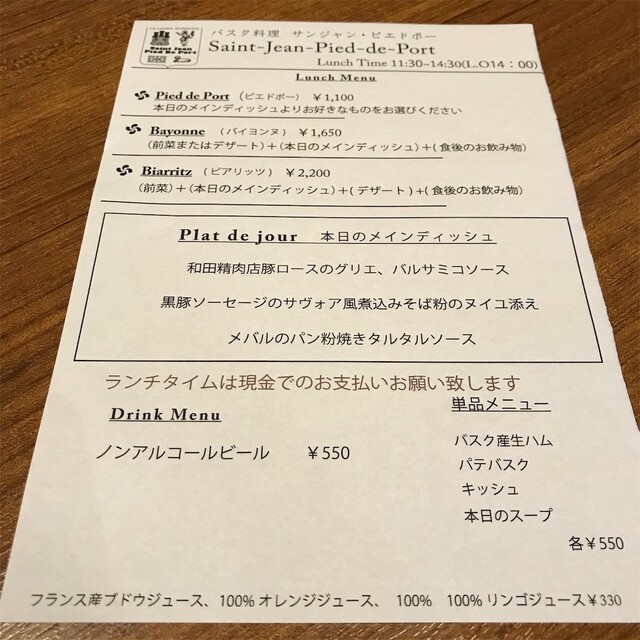 Saint Jean
Pied De Port
バスク料理 サンジャン・ピエドポー
Saint-Jean-Pied-de-Port
Lunch Time 11:30-14:30(L.O14：00)
Lunch Menu
Pied de Port (ピエドポー) ￥1,100
本日のメインディッシュよりお好きなものをお選びください
Bayonne (バイヨンヌ) ￥1,650
(前菜またはデザート)＋(本日のメインディッシュ)＋(食後のお飲み物)
Biarritz (ビアリッツ) ￥2,200
(前菜)＋(本日のメインディッシュ)＋(デザート)＋(食後のお飲み物)
Plat de jour 本日のメインディッシュ
和田精肉店豚ロースのグリエ、バルサミコソース
黒豚ソーセージのサヴォア風煮込みそば粉のヌイユ添え
メバルのパン粉焼きタルタルソース
ランチタイムは現金でのお支払いお願い致します
Drink Menu
ノンアルコールビール ￥550
単品メニュー
バスク産生ハム
パテバスク
キッシュ
本日のスープ
各￥550
フランス産ブドウジュース、100% オレンジジュース、 100% 100% リンゴジュース￥330